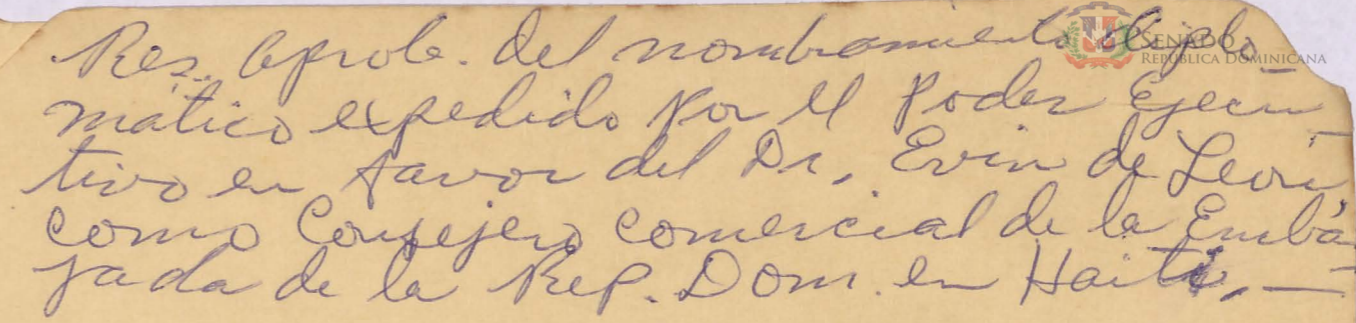 Res. aprob. del nombramiento diplo-
mático expedido por el Poder Ejecu-
tivo en favor del Dr. Evin de León
como Consejero comercial de la Emba-
jada de la Rep. Dom. en Haití.—
SENADO
REPÚBLICA DOMINICANA